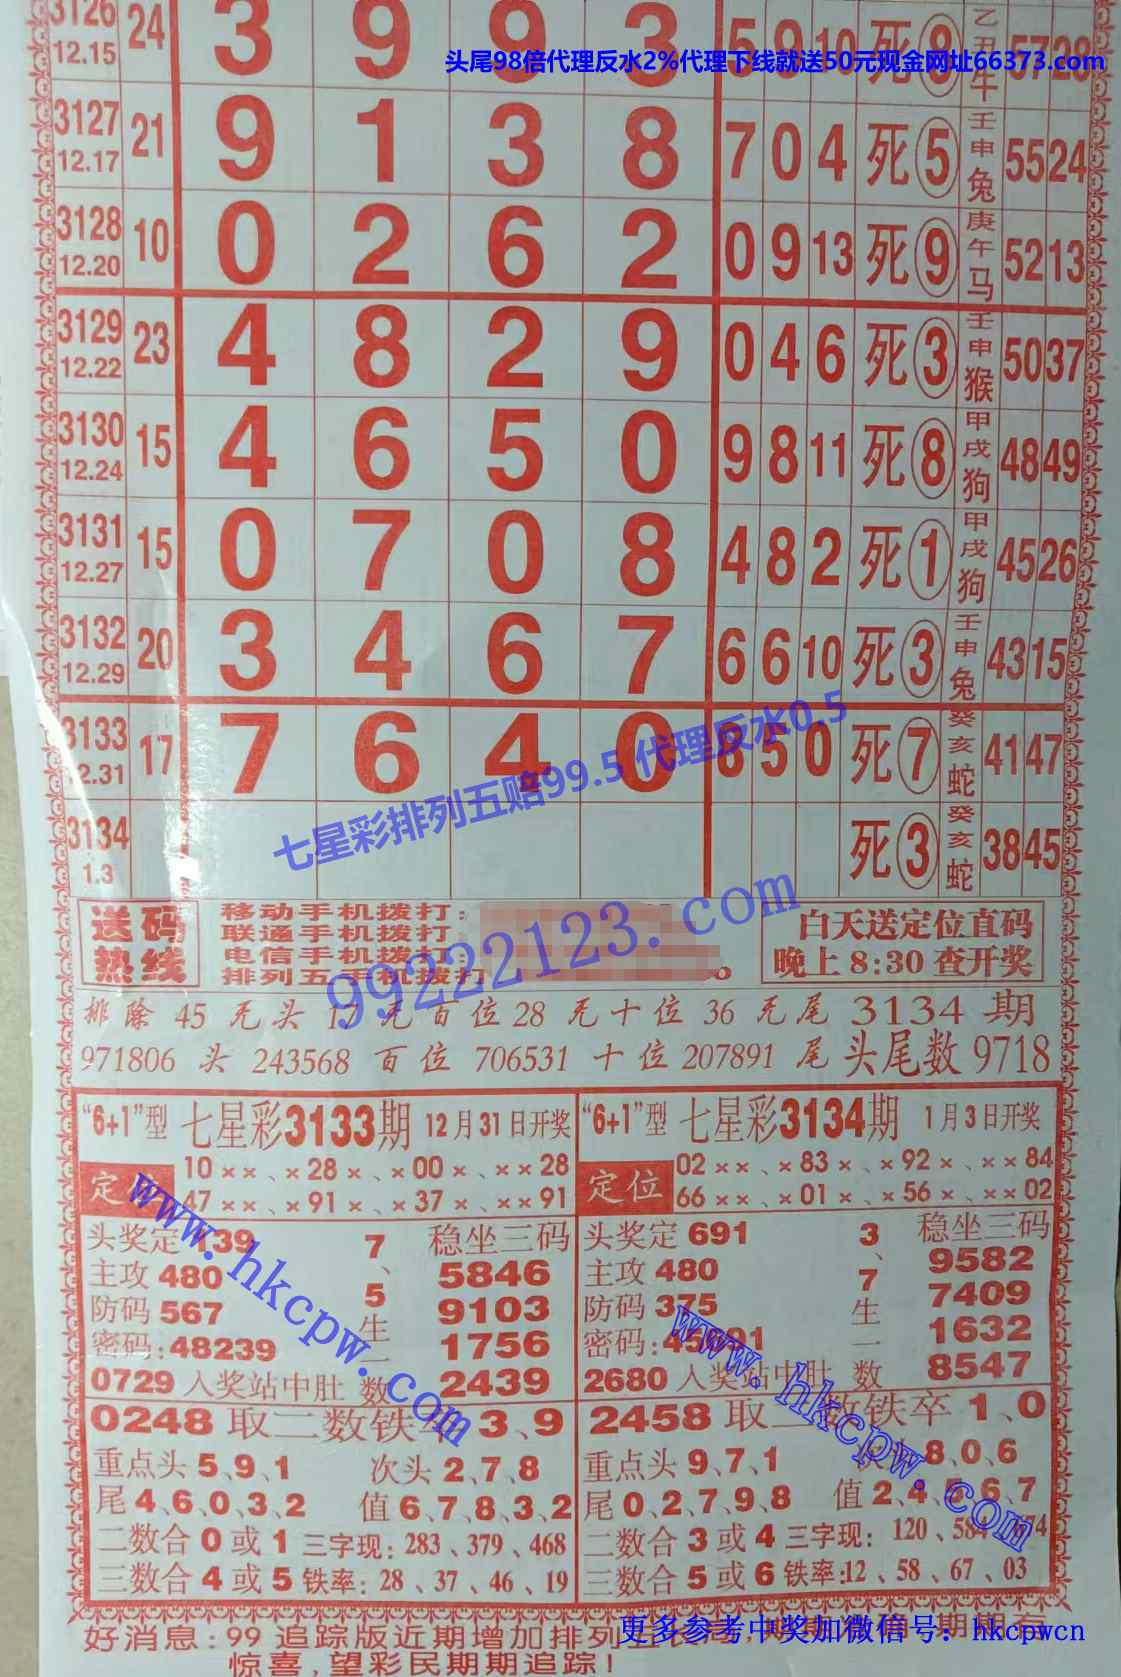 头尾98倍代理反水2%代理下线就送50元现金网址66373.com
3126 12.15 24 3 9 9 3 5 9 10 死 9 乙丑牛 57 28
3127 12.17 21 9 1 3 8 7 0 4 死 5 壬申兔 55 24
3128 12.20 10 0 2 6 2 0 9 13 死 9 庚午马 52 13
3129 12.22 23 4 8 2 9 0 4 6 死 3 壬申猴 50 37
3130 12.24 15 4 6 5 0 9 8 11 死 8 甲戌狗 48 49
3131 12.27 15 0 7 0 8 4 8 2 死 1 甲戌狗 45 26
3132 12.29 20 3 4 6 7 6 6 10 死 3 壬申兔 43 15
3133 12.31 17 7 6 4 0 6 5 0 死 7 癸亥蛇 41 47
3134 1.3 死 3 癸亥蛇 38 45
七星彩排列五赔99.5 代理反水0.5
99222123.com
送码热线
移动手机拨打:
联通手机拨打:
电信手机拨打:
排列五手机拨打
白天送定位直码
晚上8:30查开奖
排除 45 死头 17 死百位 28 死十位 36 死尾 3134 期
971806 头 243568 百位 706531 十位 207891 尾 头尾数 9718
“6+1”型 七星彩3133期 12月31日开奖
定
10××、×28×、×00×、××28
47××、×91×、×37×、××91
头奖定 139
主攻 480
防码 567
密码:48239
0729 入奖站中肚
7、5生一数
稳坐三码
5846
9103
1756
2439
0248 取二数铁率 3、9
重点头 5、9、1 次头 2、7、8
尾 4、6、0、3、2 值 6、7、8、3、2
二数合 0 或 1 三字现: 283、379、468
三数合 4 或 5 铁率: 28、37、46、19
“6+1”型 七星彩3134期 1月3日开奖
定位
02××、×83×、×92×、××84
66××、×01×、×56×、××02
头奖定 691
主攻 480
防码 375
密码:
2680 入奖站中肚
3、7生一数
稳坐三码
9582
7409
1632
8547
2458 取二数铁卒 1、0
重点头 9、7、1 次头 8、0、6
尾 0、2、7、9、8 值 2、4、5、6、7
二数合 3 或 4 三字现: 120、584、
三数合 5 或 6 铁率:12、58、67、03
www.hkcpw.com
www.hkcpw.com
好消息:99 追踪版近期增加排列五
更多参考中奖加微信号: hkcpwcn
惊喜,望彩民期期追踪!